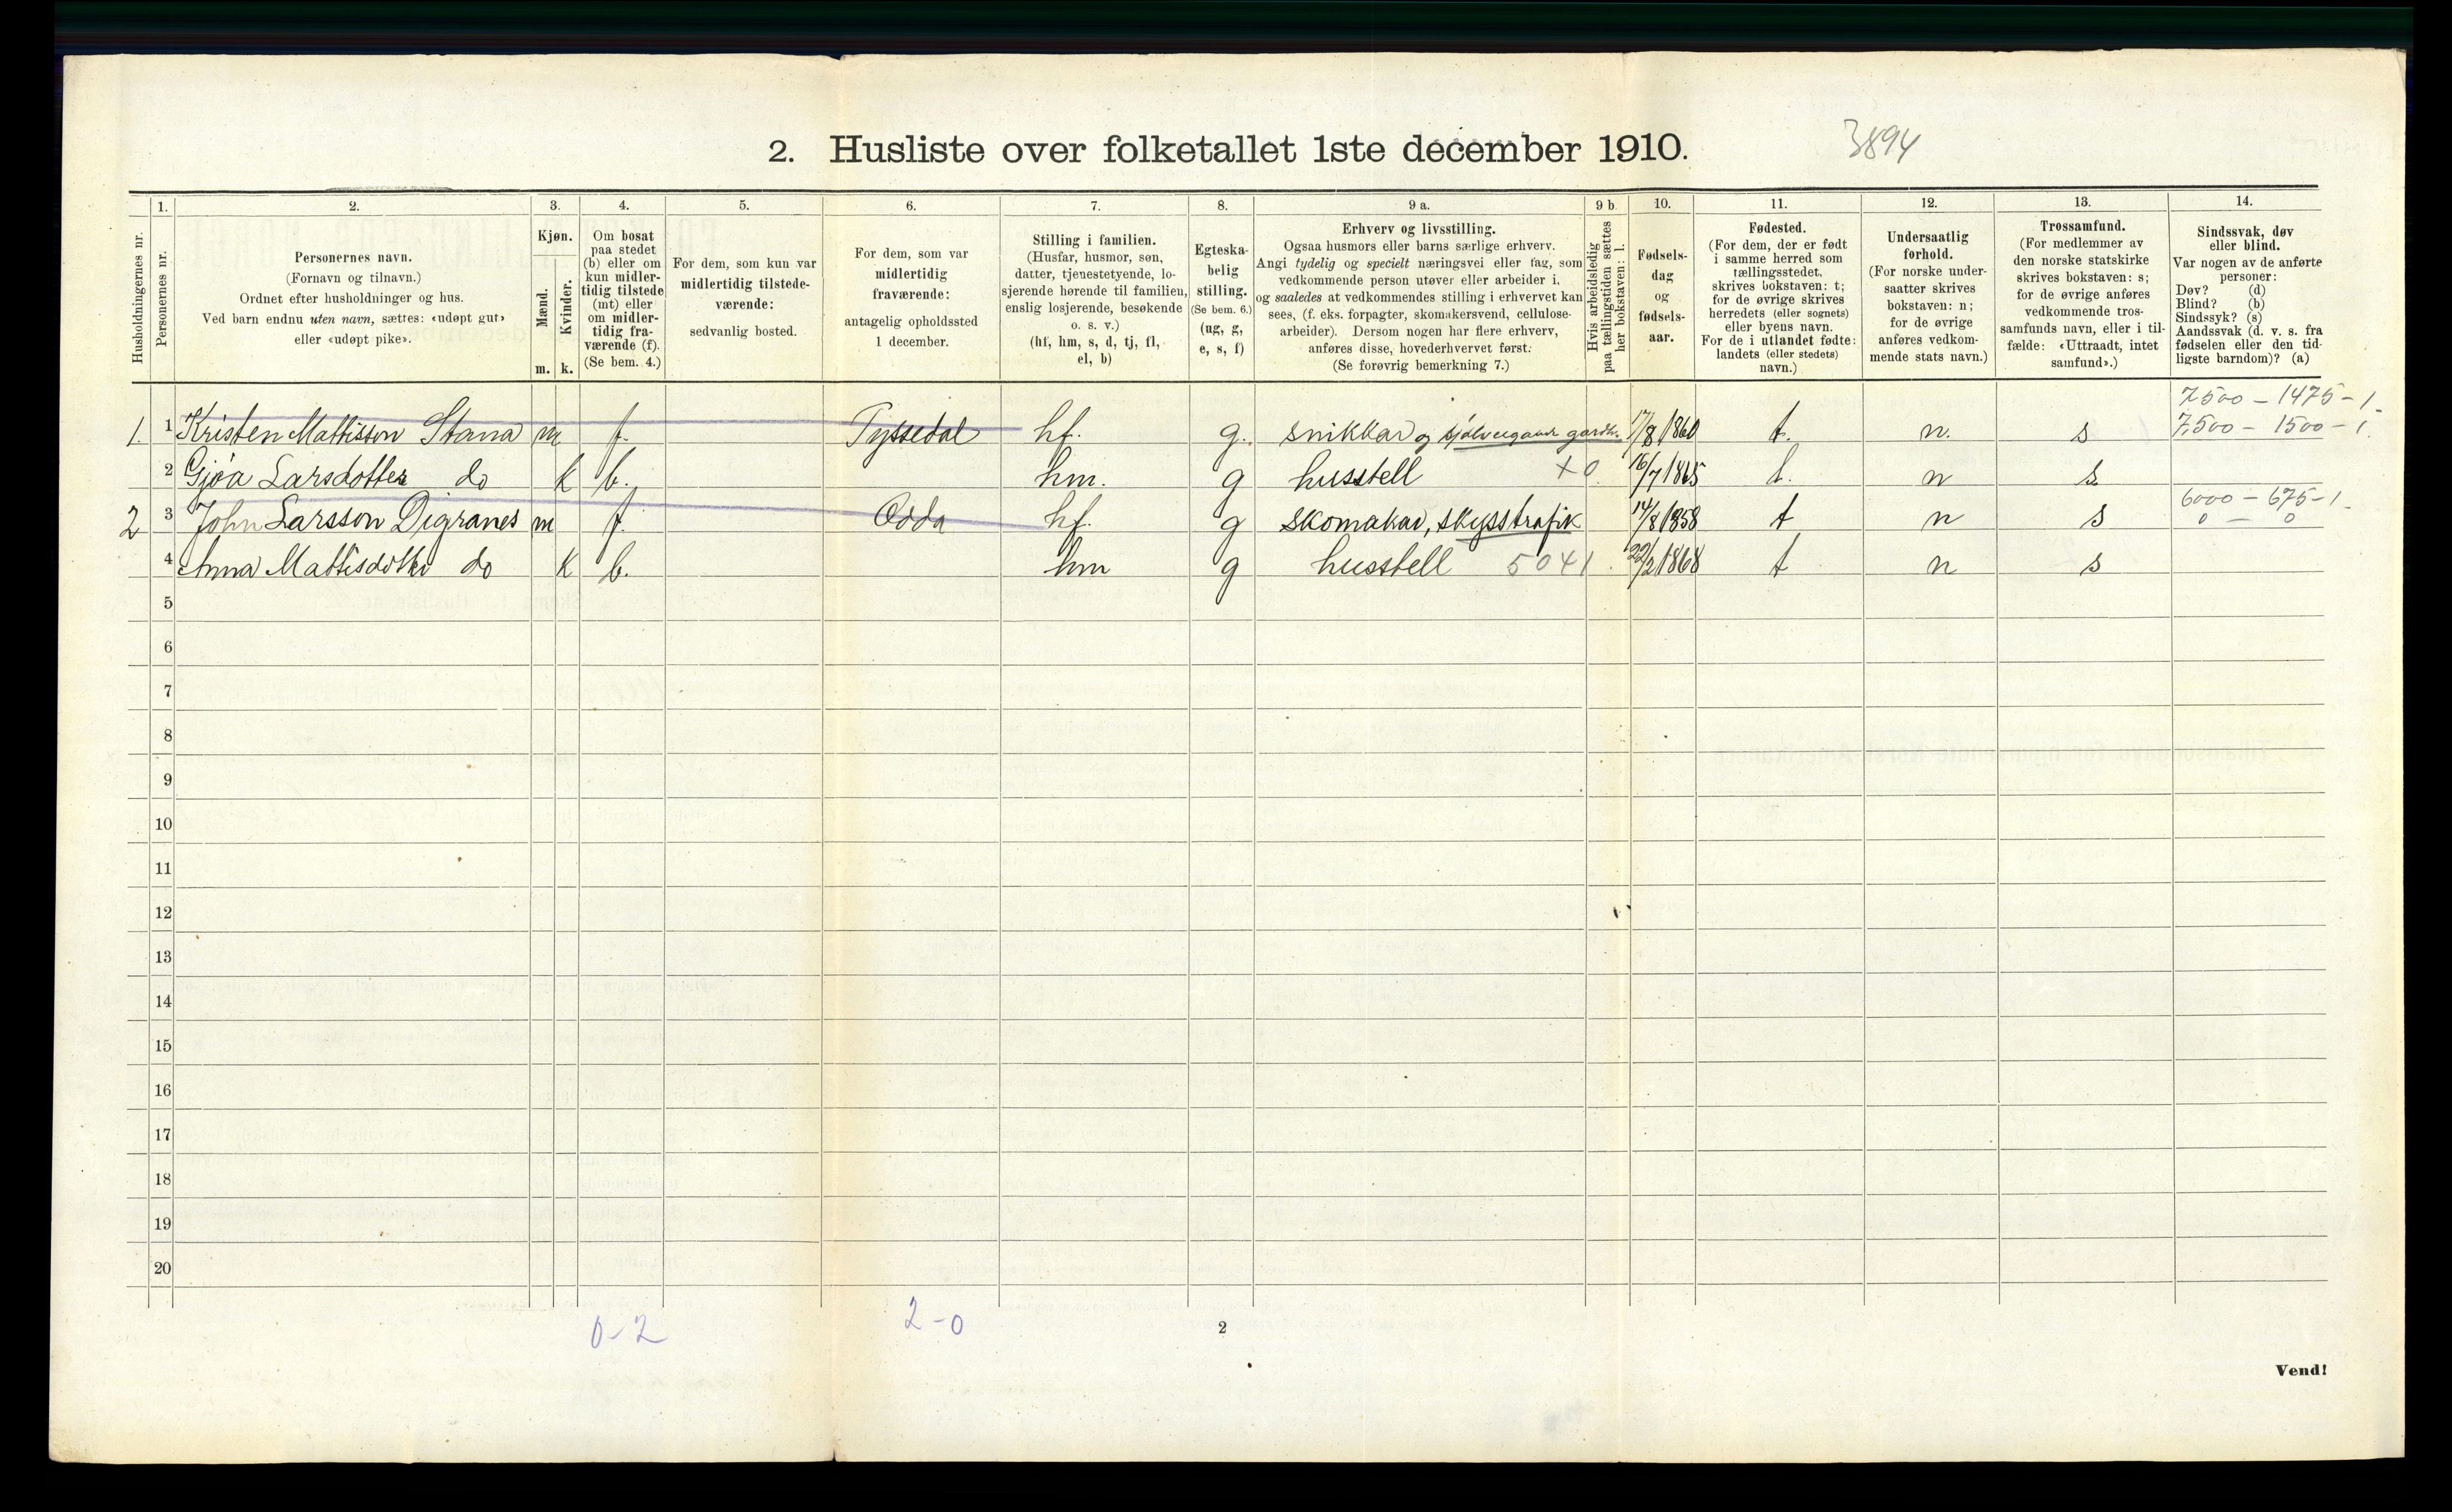 2. Husliste over folketallet 1ste december 1910.
3894
1. 2. 3. 4. 5. 6. 7. 8. 9 a. 9 b. 10. 11. 12. 13. 14.
Husholdningernes nr.
Personernes nr.
Personernes navn.
(Fornavn og tilnavn.)
Ordnet efter husholdninger og hus.
Ved barn endnu uten navn, sættes: «udøpt gut»
eller «udøpt pike».
Kjøn.
Mænd.
Kvinder.
m. k.
Om bosat
paa stedet
(b) eller om
kun midler-
tidig tilstede
(mt) eller
om midler-
tidig fra-
værende (f).
(Se bem. 4.)
For dem, som kun var
midlertidig tilstede-
værende:
sedvanlig bosted.
For dem, som var
midlertidig
fraværende:
antagelig opholdssted
1 december.
Stilling i familien.
(Husfar, husmor, søn,
datter, tjenestetyende, lo-
sjerende hørende til familien,
enslig losjerende, besøkende
o. s. v.)
(hf, hm, s, d, tj, fl,
el, b)
Egteska-
belig
stilling.
(Se bem. 6.)
(ug, g,
e, s, f)
Erhverv og livsstilling.
Ogsaa husmors eller barns særlige erhverv.
Angi tydelig og specielt næringsvei eller fag, som
vedkommende person utøver eller arbeider i,
og saaledes at vedkommendes stilling i erhvervet kan
sees, (f. eks. forpagter, skomakersvend, cellulose-
arbeider). Dersom nogen har flere erhverv,
anføres disse, hovederhvervet først.
(Se forøvrig bemerkning 7.)
Hvis arbeidsledig
paa tællingstiden sættes
her bokstaven: l.
Fødsels-
dag
og
fødsels-
aar.
Fødested.
(For dem, der er født
i samme herred som
tællingsstedet,
skrives bokstaven: t;
for de øvrige skrives
herredets (eller sognets)
eller byens navn.
For de i utlandet fødte:
landets (eller stedets)
navn.)
Undersaatlig
forhold.
(For norske under-
saatter skrives
bokstaven: n;
for de øvrige
anføres vedkom-
mende stats navn.)
Trossamfund.
(For medlemmer av
den norske statskirke
skrives bokstaven: s;
for de øvrige anføres
vedkommende tros-
samfunds navn, eller i til-
fælde: «Uttraadt, intet
samfund».)
Sindssvak, døv
eller blind.
Var nogen av de anførte
personer:
Døv? (d)
Blind? (b)
Sindssyk? (s)
Aandssvak (d. v. s. fra
fødselen eller den tid-
ligste barndom)? (a)
7500 - 1475 - 1
1. 1 Kristen Mattisson Stana m f. Tyssedal hf. g. snikkar og sjølveigande gardb. 17/8 1860 t. n. s 7500 - 1500 - 1
2 Gjøa Larsdotter do k b. hm. g husstell +0 16/7 1865 t. n s
6000 - 675 - 1
2 3 John Larsson Digranes m f. Odda hf. g skomakar, skysstrafik 14/8 1858 t n s 0 - 0
4 Anna Mattisdotter do k b. hm g husstell 5041 22/2 1868 t n s
5
6
7
8
9
10
11
12
13
14
15
16
17
18
19
20
0-2 2-0
2
Vend!